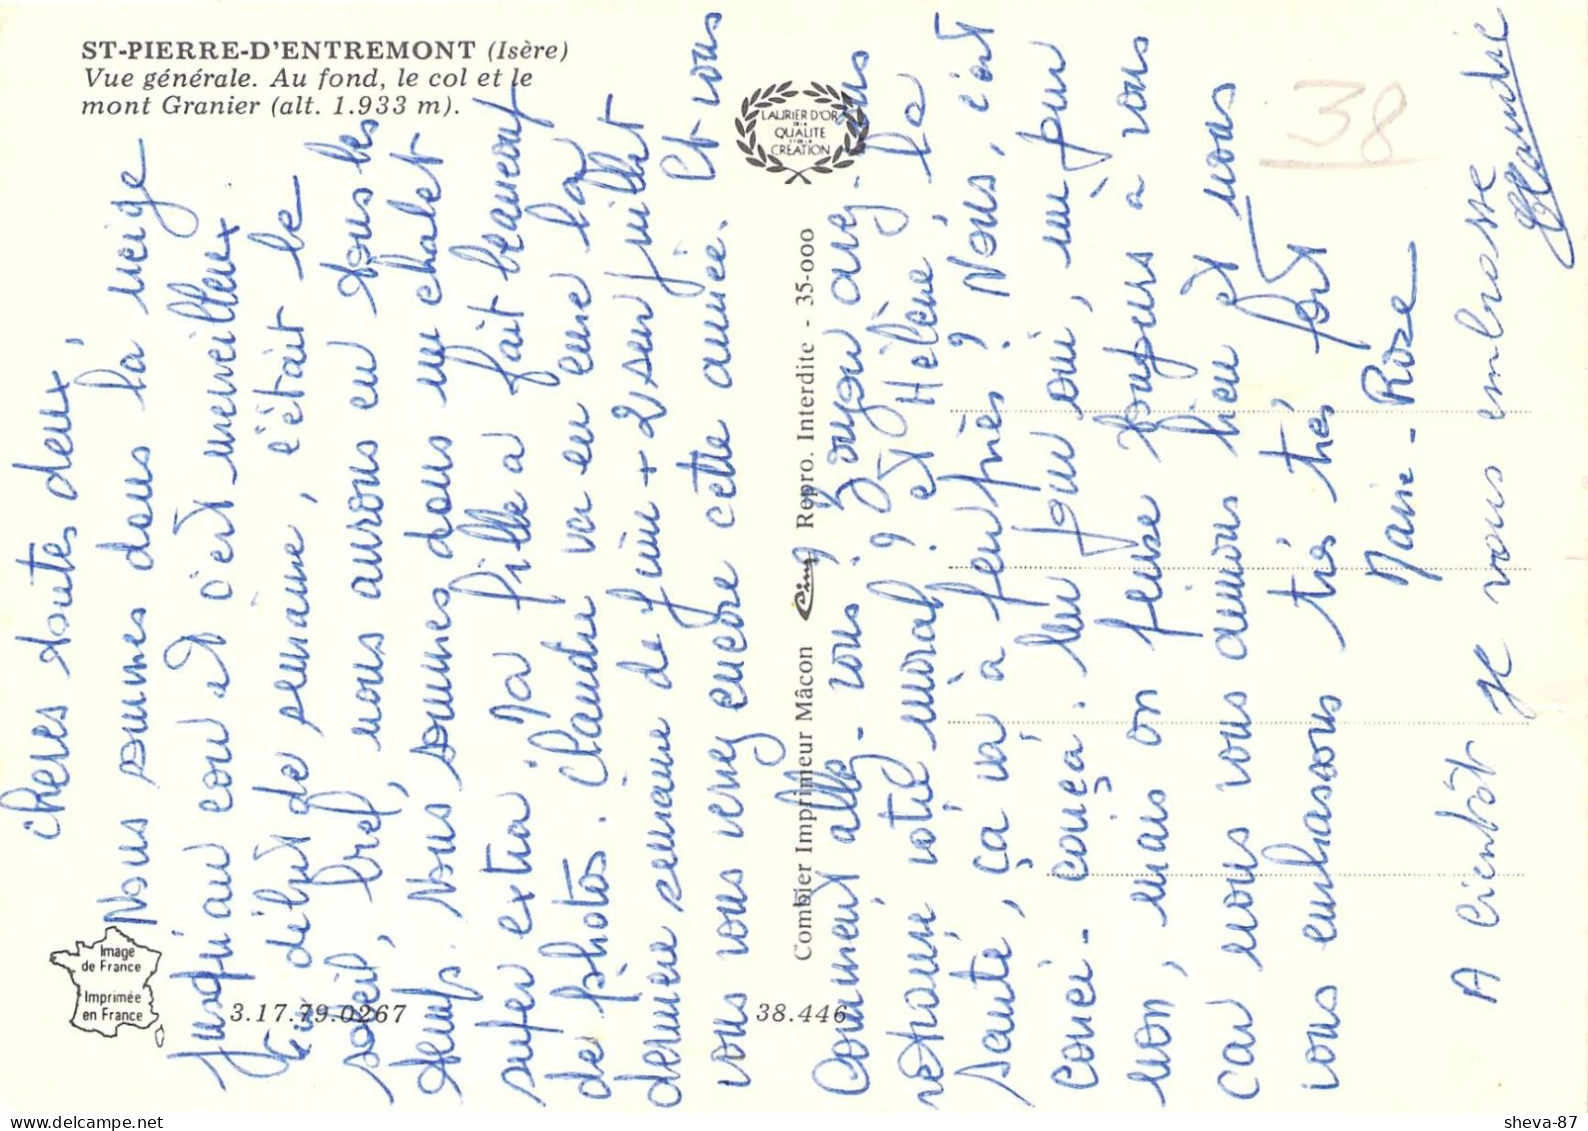 ST-PIERRE-D'ENTREMONT (Isère)
Vue générale. Au fond, le col et le
mont Granier (alt. 1.933 m).
LAURIER D'OR
DE LA
QUALITE
ET DE LA
CREATION
38
Image
de France
Imprimée
en France
3.17.79.0267
38.446
Combier Imprimeur Mâcon Cim Repro. Interdite - 35-000
Chères toutes deux,
Nous sommes dans la neige
jusqu'au cou et c'est merveilleux.
En début de semaine, c'était le
soleil, bref, nous aurons eu tous les
temps. Nous sommes dans un chalet
super extra. Ma fille a fait beaucoup
de photos. Claudie va en cure la
dernière semaine de juin + 2 sem juillet
vous vous verrez encore cette année. Et vous
Comment allez-vous ? Zouzou avez-vous
retrouvé votre moral ? et Hélène, la
santé, ça va à peu près ? Nous, c'est
couci-couça. Un jour oui, un jour
non, mais on pense toujours à vous
car nous vous aimons bien et nous
vous embrassons très très fort
Marie-Rose
A bientôt je vous embrasse
Claudie
sheva-87